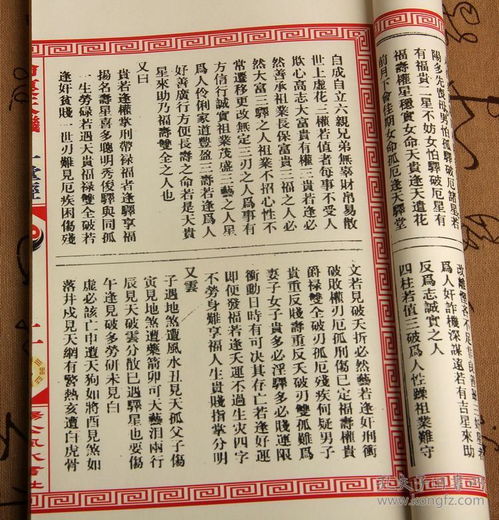 陽多先喪母男怕孤驛破厄諸星若
有福貴二星不妨女怕驛破厄星有
福壽權星穩實女命天貴逢天遣花
前月下會佳期女命孤厄逢天驛堂
為人奸詐機深謀遠若有吉星來助
反為志誠實之人
四柱若值三破為人性躁祖業難守
自成自立六親兄弟無辜財帛易散
世上虛花三權若值者每事不受人
欺心高志大富貴有權三貴若逢必
然善承祖業長保富貴三福之人必
然大富三驛之人祖業不招心性不
常遷移更改無定三刃之人為事有
方信行誠實祖業茂盛三藝之人星
為人伶俐家道豐盈三壽若逢為人
好善廣行方便長壽之命若是天貴
星來助乃福壽雙全之人也
又曰
貴若逢權掌刑帶祿福者逢驛享福
揚名壽星喜多聰明秀俊驛與同孤
一生勞碌若遇天貴福祿雙全破若
逢奸貧賤一世刃難見厄疾困傷殘
文若見破天折必然藝若逢奸刑衝
破敗權刃厄孤刑傷已定福壽權貴
爵祿雙全破刃厄殘疾何疑男子
貴重反賤壽重反夭破刃雙孤難為
妻子女子貴多必淫驛多必賤運限
衝動日時有可決其存亡若逢好運
即便發福若逢夭運不過生灾四字
不勞身難享福人生貴賤指掌分明
又雲
子遇地煞遭風水丑見天孤父子傷
寅見地煞遭藥箭卯可夫藝泪兩行
辰見天破雲分散巳遇驛星也要傷
午逢見破多勞研未見白
虛必該亡申遭天狗如將酉見煞如
落井戌見天網有驚熱亥遭白虎骨